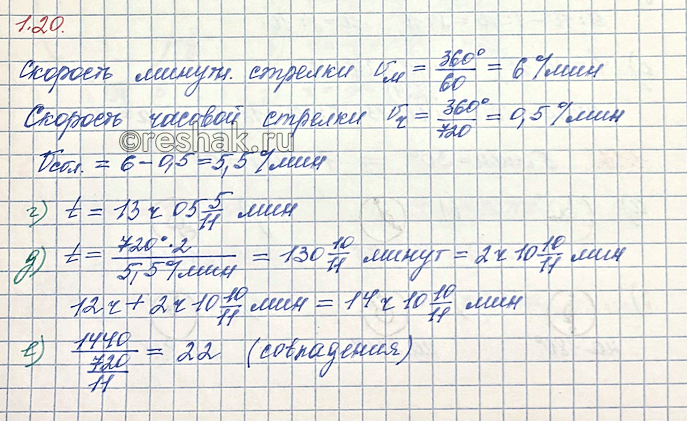 1.20.
Скорость минутн. стрелки Vм = 360°/60 = 6°/мин
Скорость часовой стрелки Vч = 360°/720 = 0,5°/мин
©reshak.ru
Vсбл. = 6 - 0,5 = 5,5°/мин
г) t = 13ч 05 5/11 мин
д) t = 720°·2/5,5°/мин = 130 10/11 минут = 2ч 10 10/11 мин
12ч + 2ч 10 10/11 мин = 14ч 10 10/11 мин
е) 1440/(720/11) = 22 (совпадения)